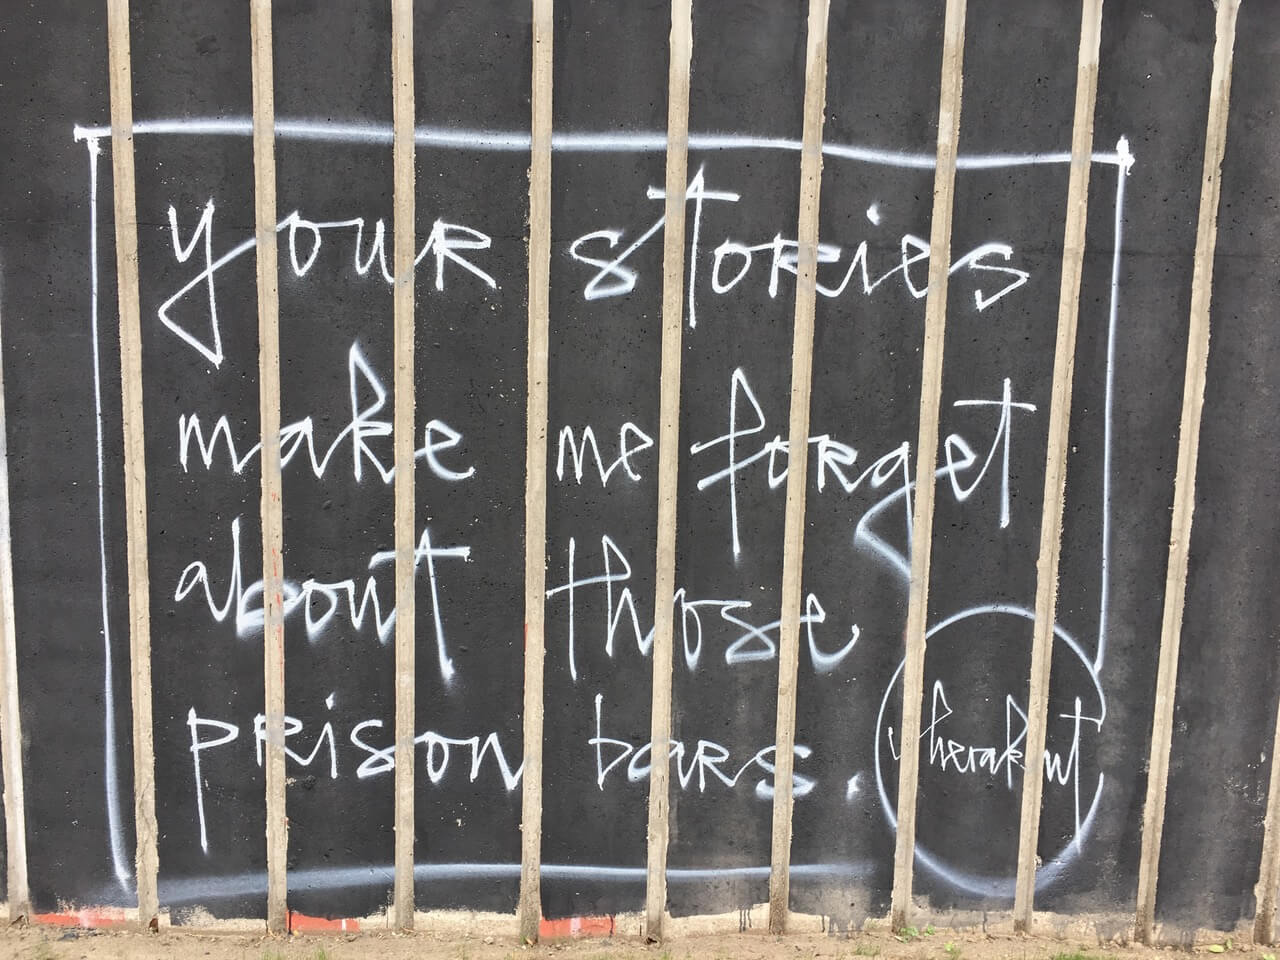 your stories
make me forget
about those
prison bars.
herakut